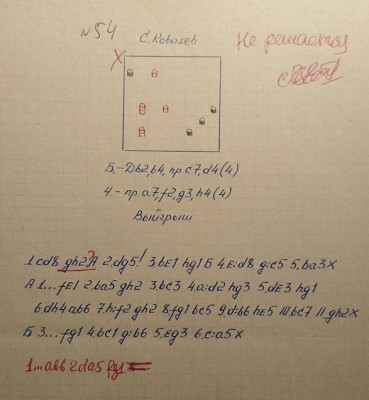 №54 С. Ковалев
Не решается
X
Б.-Дb2,b4, пр c7,d4(4)
Ч.- пр. a7,f2,g3,h4(4)
Выигрыш
1.cd8 gh2?A 2.dg5! 3.bE1 hg1 Б 4.E:d8 g:c5 5.ba3X
A 1...fE1 2.ba5 gh2 3.bc3 4.a:d2 hg3 5.dE3 hg1
6.dh4 ab6 7.h:f2 gh2 8.fg1 bc5 9.d:b6 hE5 10.bc7 11.gh2X
Б 3...fg1 4.bc1 g:b6 5.Eg3 6.c:a5X
1...ab6 2da5 fg1=